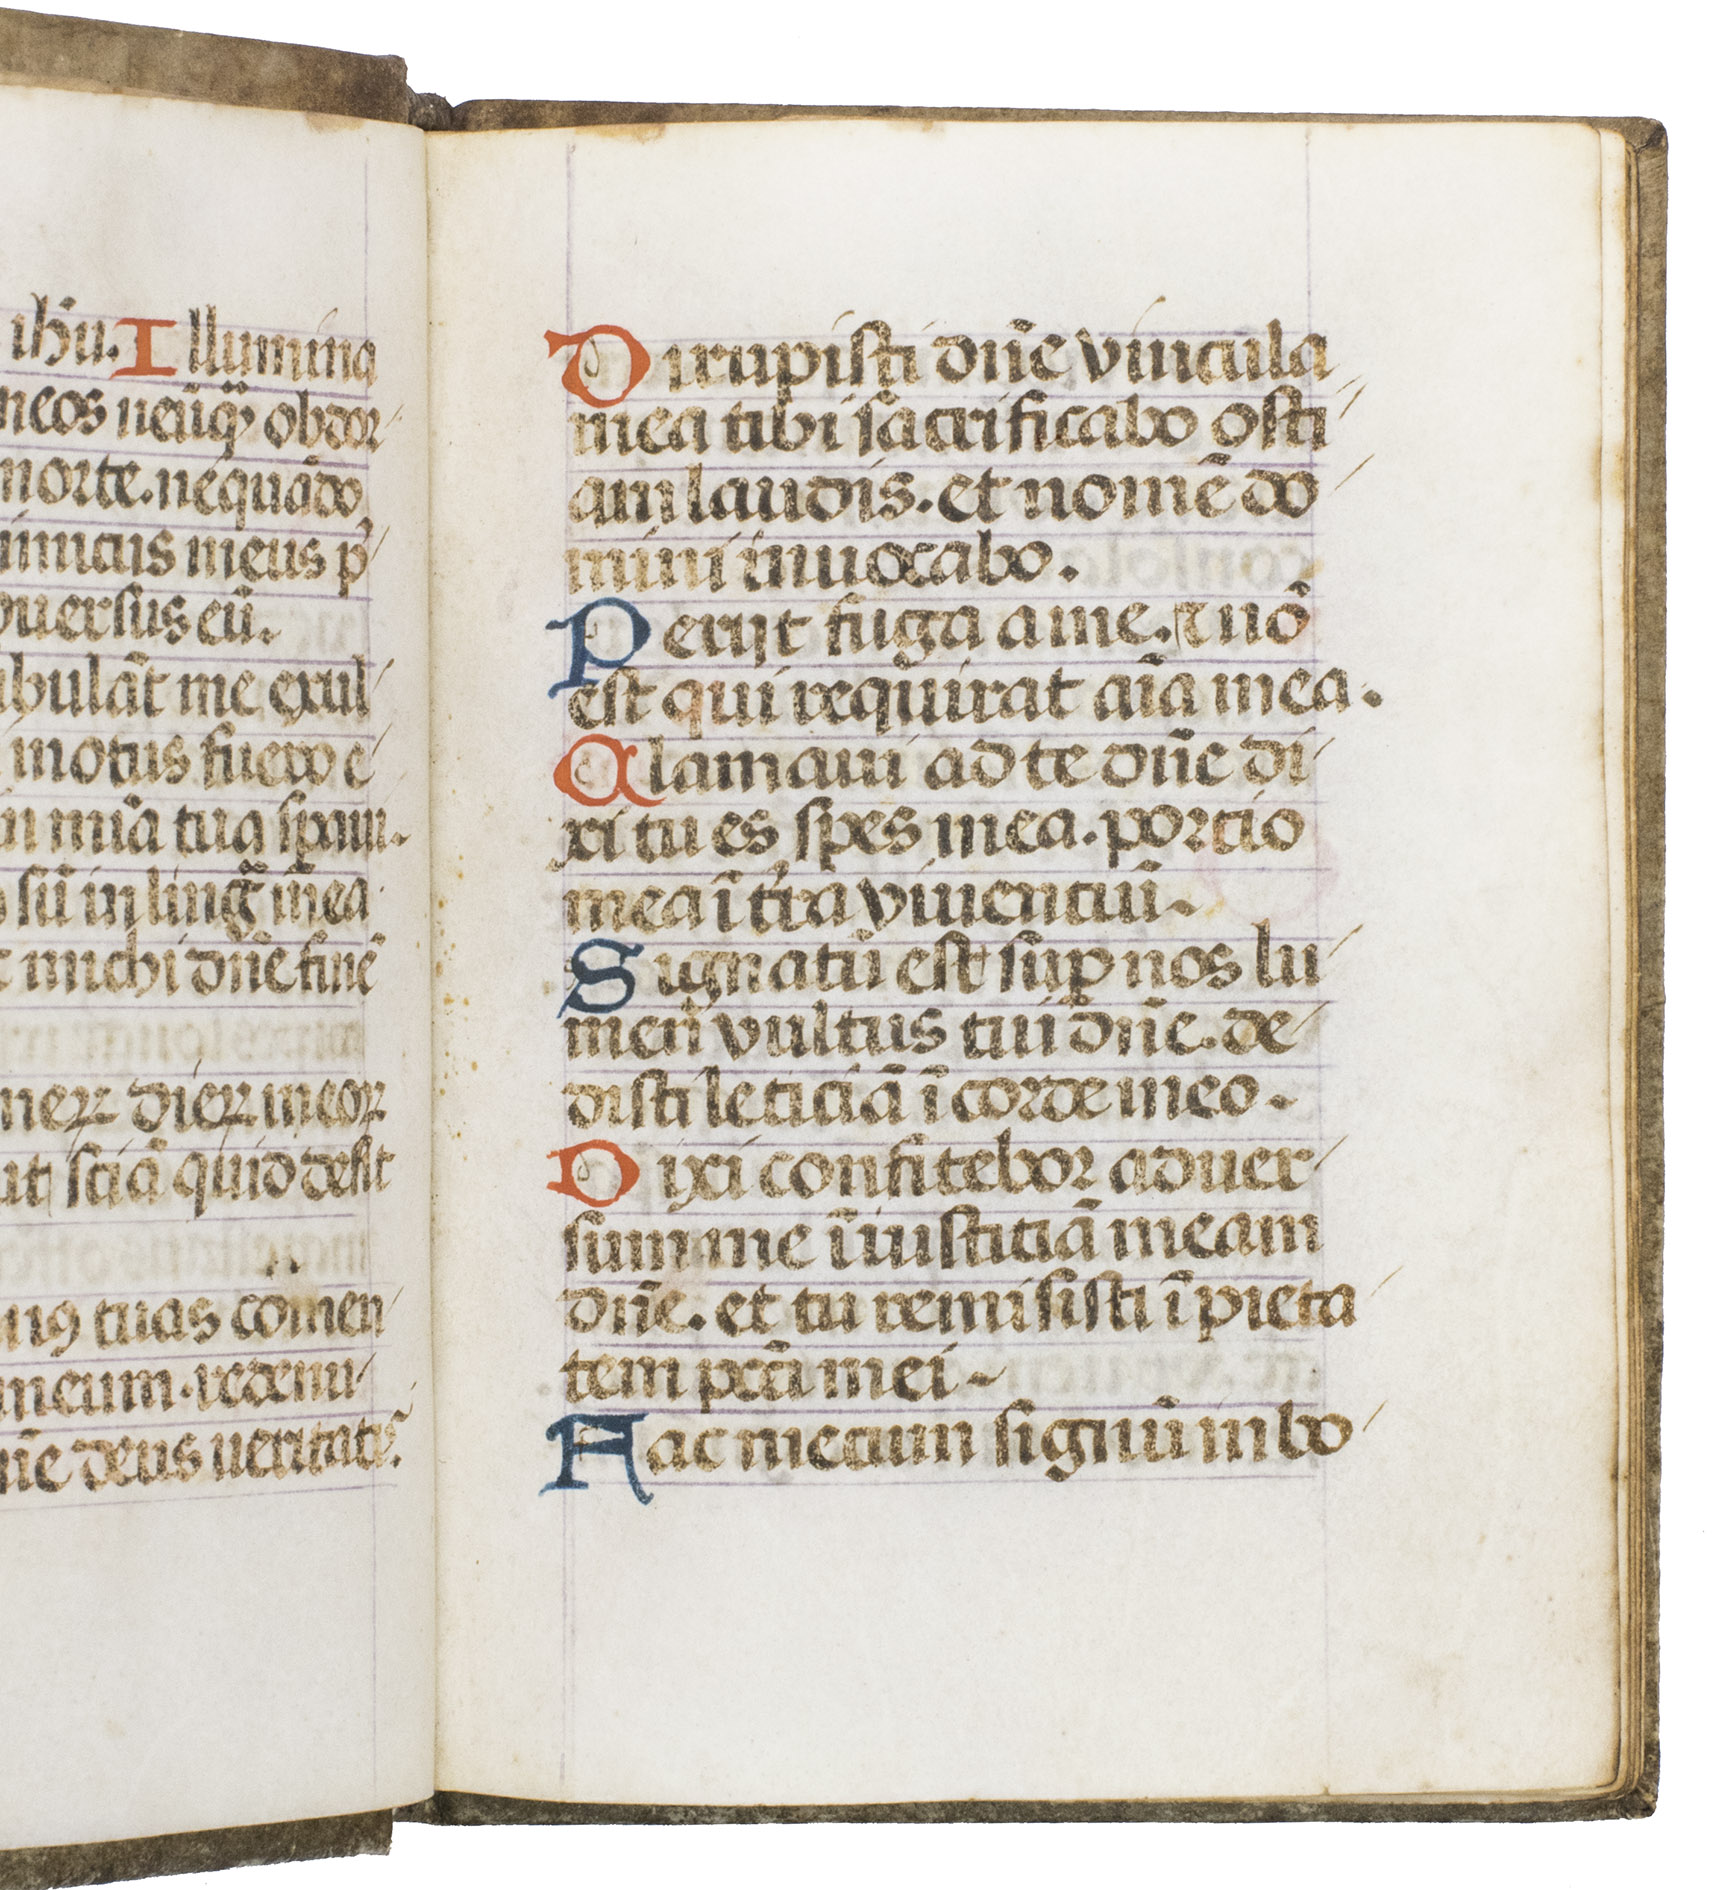 ihū. Illumina
meos neūq̄ obdor
morte. nequādo
inimicus meus p̄
versus eū.
tribulāt me exul
motus fuero
in mīa tua spaui.
sū in linḡ mea
michi dn̄e finē
dieꝝ meoꝝ
ut sciā quid desit
tuas comen
meum. redemi
dn̄e deus veritatis.
Dirupisti dn̄e vincula
mea tibi sacrificabo osti
am laudis. et nomē do
mini inuocabo.
Periit fuga a me. ⁊ nō
est qui requirat aīa mea.
Clamaui ad te dn̄e di
xi tu es spes mea. portio
mea ī tr̄a viuentiū.
Signatū est suꝑ nos lu
men vultus tui dn̄e. de
disti leticiā ī corde meo.
Dixi confitebor aduer
sum me īiustitiā meam
dn̄e. et tu remisisti īpieta
tem pctī mei.
Fac mecum signū in bo